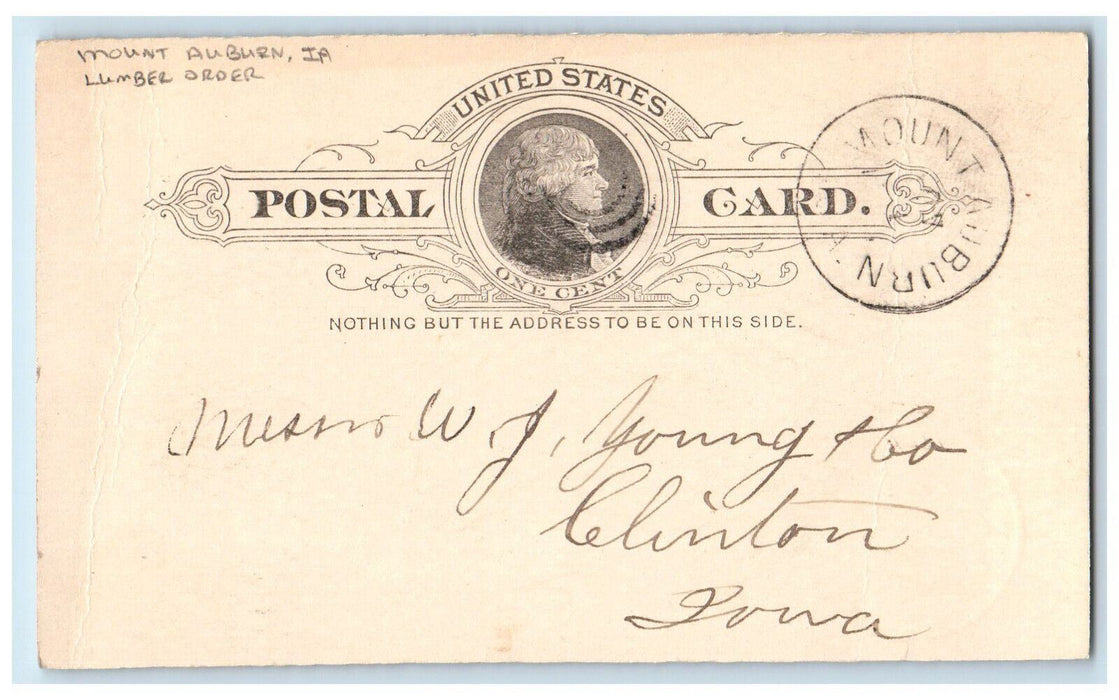 MOUNT AUBURN, IA
LUMBER ORDER
UNITED STATES
POSTAL CARD.
ONE CENT
NOTHING BUT THE ADDRESS TO BE ON THIS SIDE.
MOUNT AUBURN
Messrs W. J. Young & Co
Clinton
Iowa